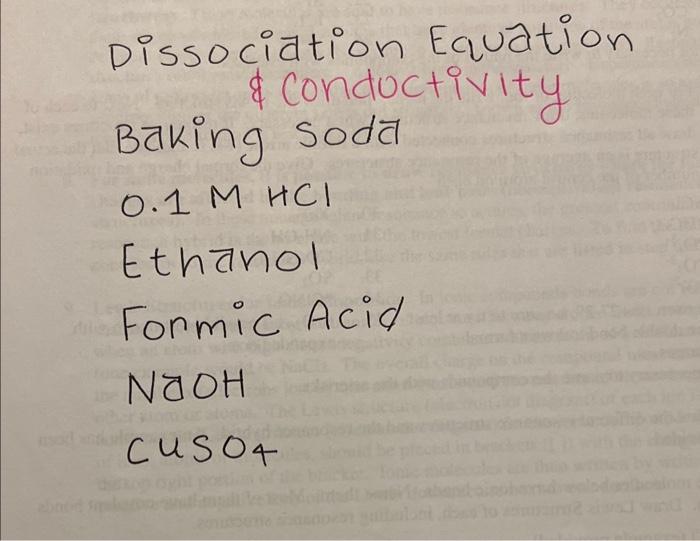 Dissociation Equation
& Conductivity
Baking soda
0.1 M HCl
Ethanol
Formic Acid
NaOH
CuSO4